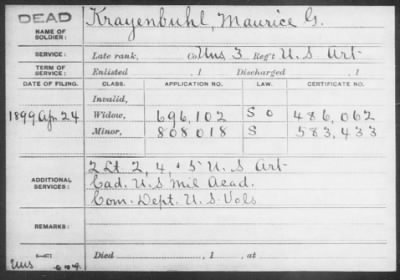 DEAD
NAME OF SOLDIER: Krayenbuhl, Maurice G.
SERVICE: Late rank, Co. Uns 3 Reg't U.S Art
TERM OF SERVICE: Enlisted , 1 Discharged , 1
DATE OF FILING. CLASS. APPLICATION NO. LAW. CERTIFICATE NO.
Invalid,
1899 Apr 24 Widow, 696,102 S O 486,062
Minor, 808018 S 583,433
ADDITIONAL SERVICES: 2 Lt 2, 4, + 5" U.S Art
Cad. U.S Mil Acad.
Com. Dept. U.S. Vols
REMARKS:
Died , 1 , at
Uns